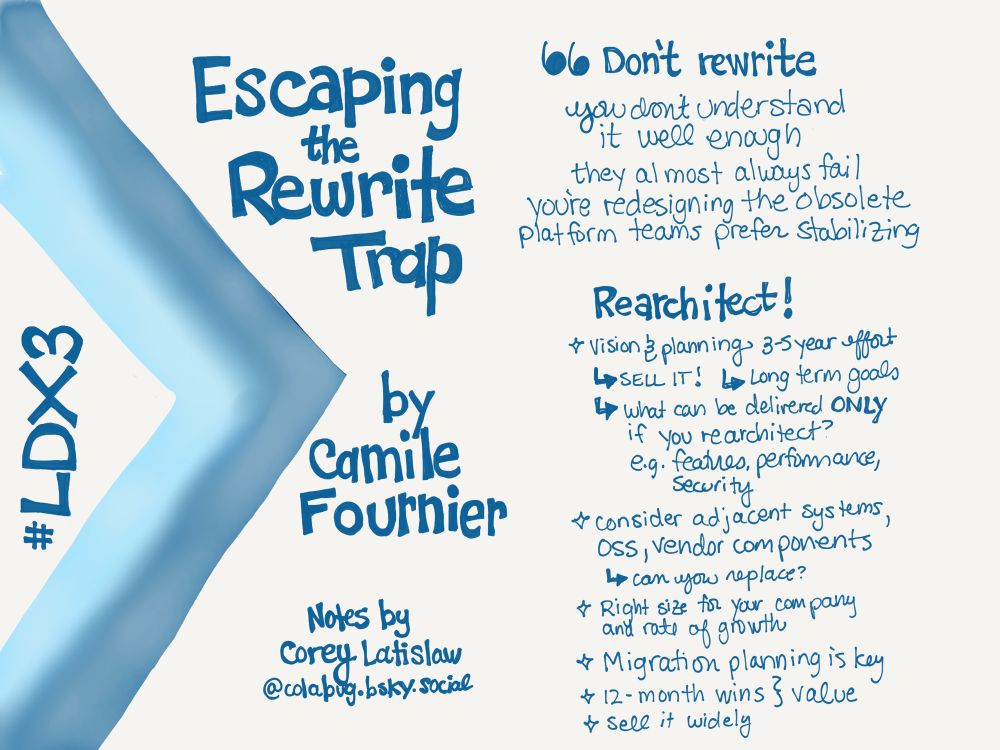 #LDX3
Escaping
the
Rewrite
Trap
by
Camile
Fournier
Notes by
Corey Latislaw
@colabug.bsky.social
“ Don't rewrite
you don't understand
it well enough
they almost always fail
you're redesigning the obsolete
platform teams prefer stabilizing
Rearchitect!
✧ Vision & planning → 3-5 year effort
↳ SELL IT! ↳ Long term goals
↳ what can be delivered ONLY
if you rearchitect?
e.g. features, performance,
security
✧ Consider adjacent systems,
OSS, vendor components
↳ can you replace?
✧ Right size for your company
and rate of growth
✧ Migration planning is key
✧ 12-month wins & value
✧ Sell it widely